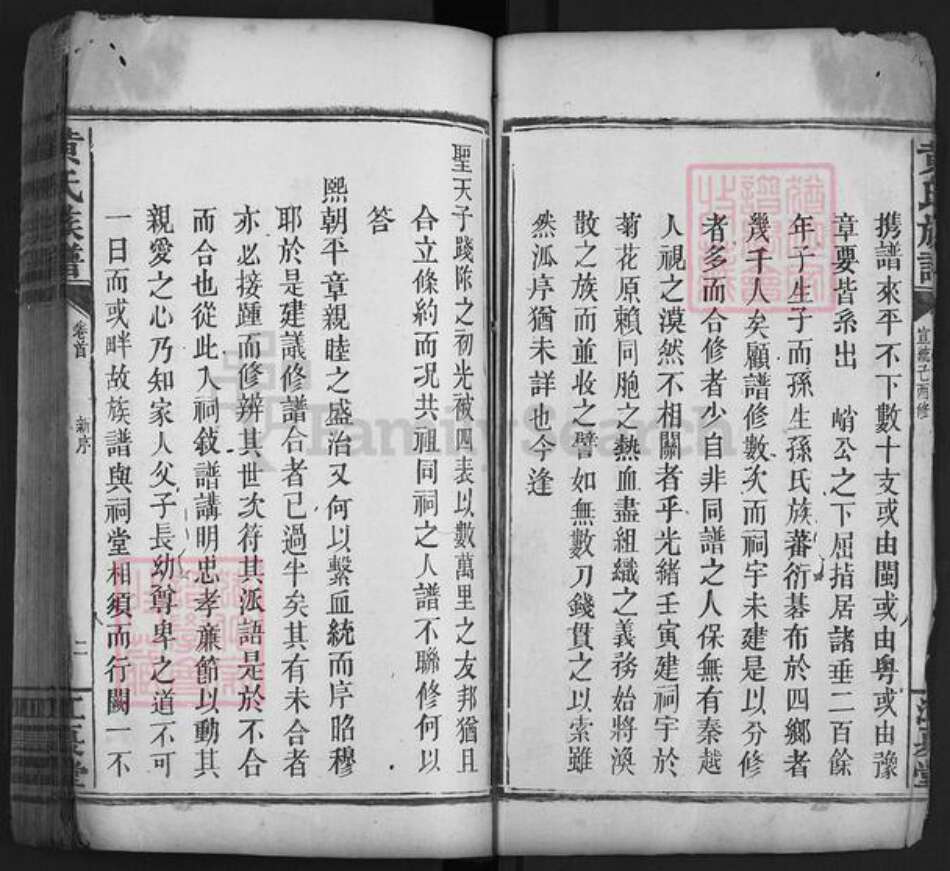 黃氏族譜
宣統己酉修
江夏堂
携譜來平不下數十支或由閩或由粵或由豫
章要皆系出 峭公之下屈指居諸垂二百餘
年子生子而孫生孫氏族蕃衍碁布於四鄉者
幾千人矣顧譜修數次而祠宇未建是以分修
者多而合修者少自非同譜之人保無有秦越
人視之漠然不相關者乎光緒壬寅建祠宇於
菊花原賴同胞之熱血盡組織之義務始將渙
散之族而並收之譬如無數刀錢貫之以索雖
然派序猶未詳也今逢
聖天子踐阼之初光被四表以數萬里之友邦猶且
合立條約而况共祖同祠之人譜不聯修何以
答
熙朝平章親睦之盛治又何以繫血統而序昭穆
耶於是建議修譜合者已過半矣其有未合者
亦必接踵而修辨其世次符其派語是於不合
而合也從此入祠敍譜講明忠孝亷節以動其
親愛之心乃知家人父子長幼尊卑之道不可
一日而或畔故族譜與祠堂相須而行闕一不
黃氏族譜
卷首
新序
二
江夏堂
FamilySearch